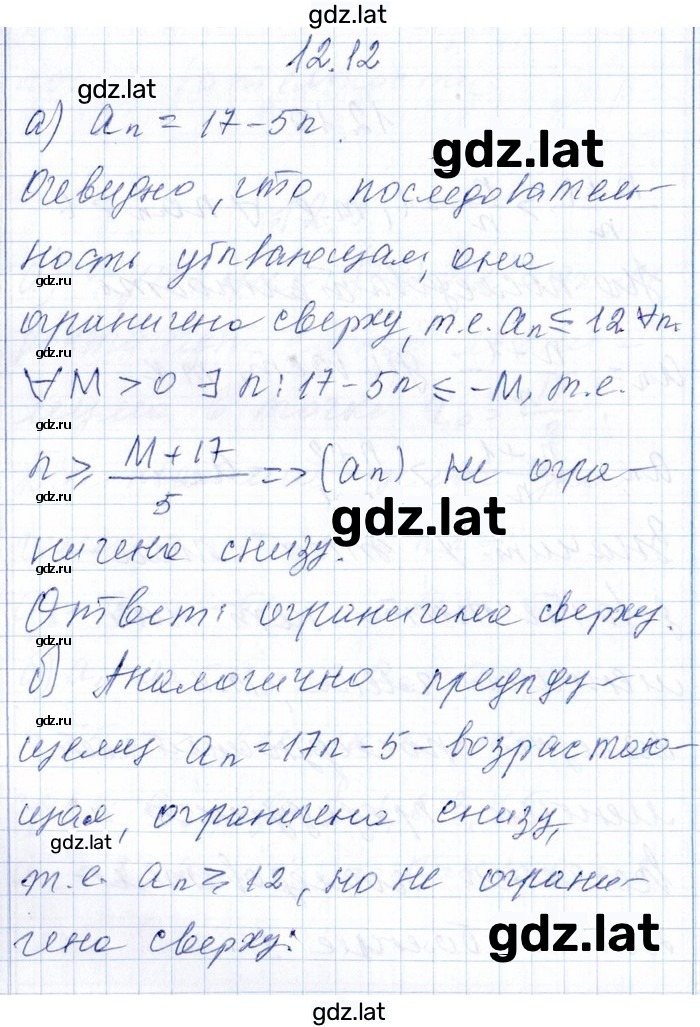 gdz.lat
12.12
gdz.lat
а) aₙ = 17 - 5n.
gdz.lat
Очевидно, что последователь-
ность убывающая, она
gdz.ru
ограничена сверху, т.е. aₙ ≤ 12 ∀n.
gdz.ru
∀M > 0 ∃ n: 17 - 5n ≤ -M, т.е.
gdz.ru
n ≥ (M + 17)/5 => (aₙ) не огра-
gdz.ru
gdz.lat
ничена снизу.
gdz.ru
Ответ: ограничена сверху.
gdz.ru
б) Аналогично преды­ду-
gdz.ru
щему aₙ = 17n - 5 - возрастаю-
щая, ограничена снизу,
gdz.lat
т.е. aₙ ≥ 12, но не ограни-
чена сверху.
gdz.lat
gdz.lat